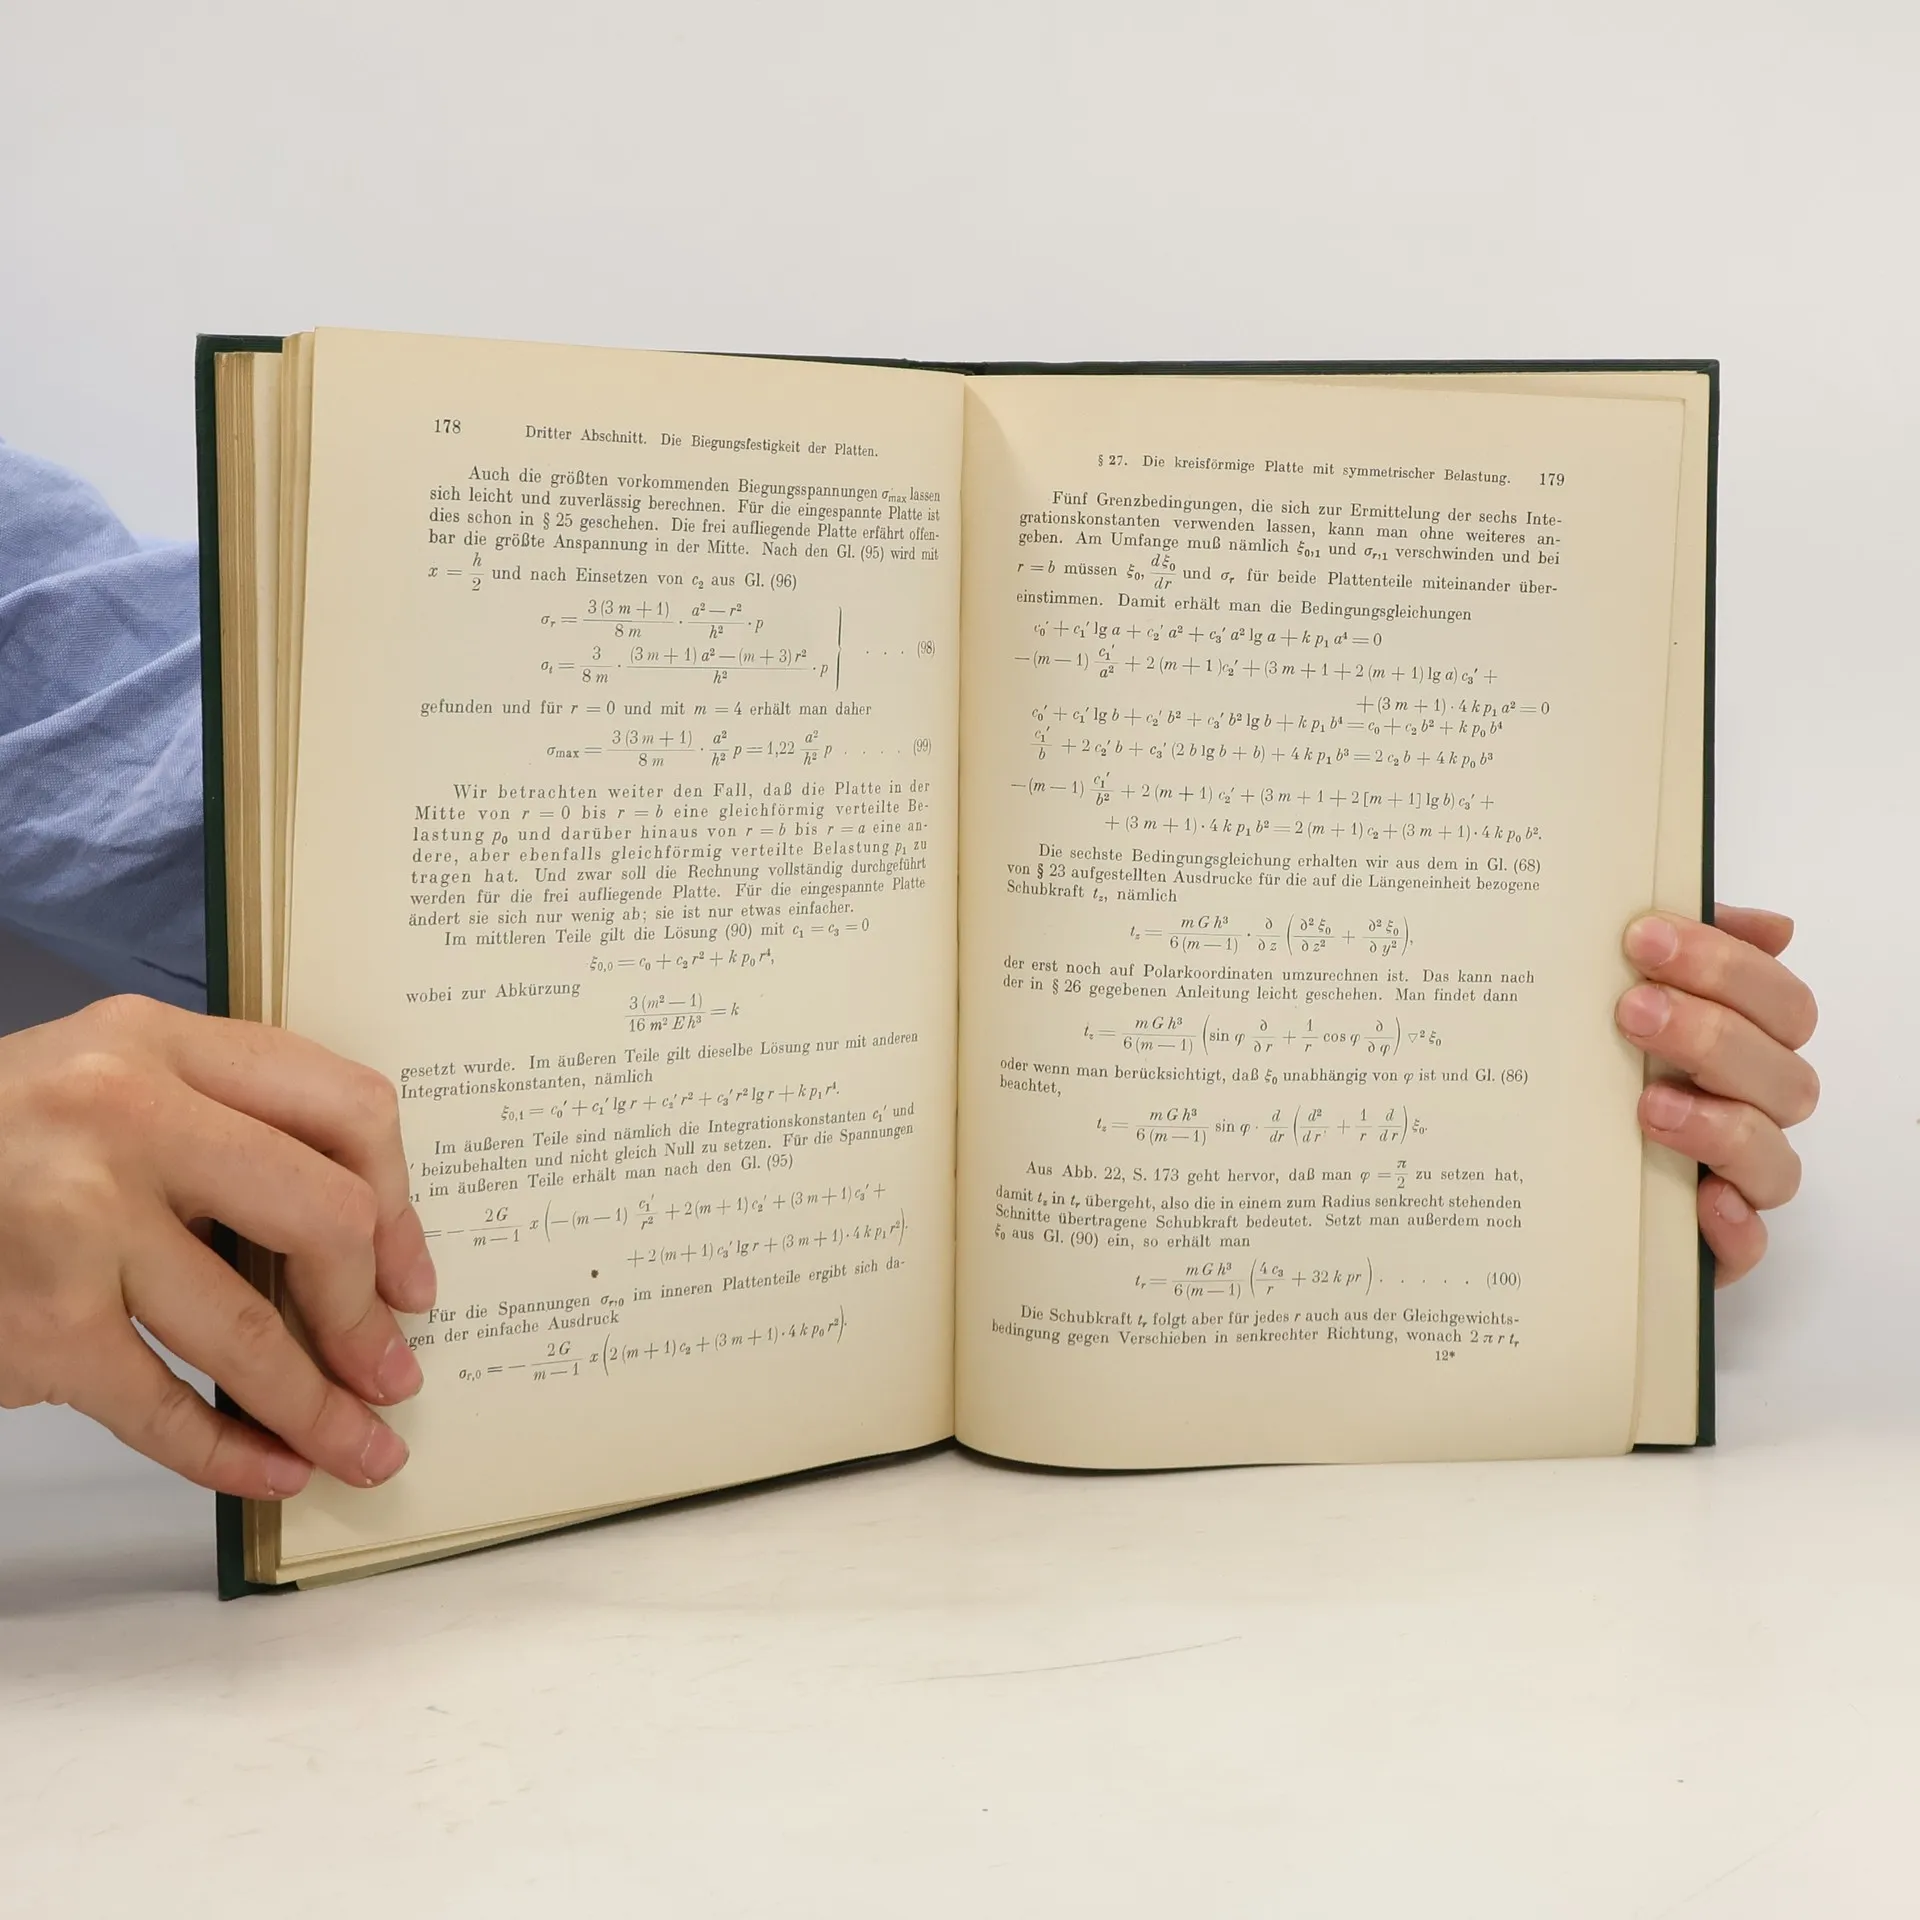 178 Dritter Abschnitt. Die Biegungsfestigkeit der Platten.
Auch die größten vorkommenden Biegungsspannungen σmax lassen
sich leicht und zuverlässig berechnen. Für die eingespannte Platte ist
dies schon in § 25 geschehen. Die frei aufliegende Platte erfährt offen-
bar die größte Anspannung in der Mitte. Nach den Gl. (95) wird mit
x = h/2 und nach Einsetzen von c₂ aus Gl. (96)
σᵣ = 3(3m+1)/8m · (a²—r²)/h² · p
σₜ = 3/8m · ((3m+1)a²—(m+3)r²)/h² · p . . . (98)
gefunden und für r = 0 und mit m = 4 erhält man daher
σmax = 3(3m+1)/8m · a²/h² p = 1,22 a²/h² p . . . . (99)
Wir betrachten weiter den Fall, daß die Platte in der
Mitte von r = 0 bis r = b eine gleichförmig verteilte Be-
lastung p₀ und darüber hinaus von r = b bis r = a eine an-
dere, aber ebenfalls gleichförmig verteilte Belastung p₁ zu
tragen hat. Und zwar soll die Rechnung vollständig durchgeführt
werden für die frei aufliegende Platte. Für die eingespannte Platte
ändert sie sich nur wenig ab; sie ist nur etwas einfacher.
Im mittleren Teile gilt die Lösung (90) mit c₁ = c₃ = 0
ξ₀,₀ = c₀ + c₂ r² + k p₀ r⁴,
wobei zur Abkürzung
3(m²—1)/16 m² E h³ = k
gesetzt wurde. Im äußeren Teile gilt dieselbe Lösung nur mit anderen
Integrationskonstanten, nämlich
ξ₀,₁ = c₀′ + c₁′ lg r + c₂′ r² + c₃′ r² lg r + k p₁ r⁴.
Im äußeren Teile sind nämlich die Integrationskonstanten c₁′ und
′ beizubehalten und nicht gleich Null zu setzen. Für die Spannungen
,₁ im äußeren Teile erhält man nach den Gl. (95)
= — 2G/(m—1) x (—(m—1) c₁′/r² + 2(m+1) c₂′ + (3m+1) c₃′ +
+ 2(m+1) c₃′ lg r + (3m+1)·4 k p₁ r²).
Für die Spannungen σᵣ,₀ im inneren Plattenteile ergibt sich da-
gen der einfache Ausdruck
σᵣ,₀ = — 2G/(m—1) x (2(m+1) c₂ + (3m+1)·4 k p₀ r²).
§ 27. Die kreisförmige Platte mit symmetrischer Belastung. 179
Fünf Grenzbedingungen, die sich zur Ermittelung der sechs Inte-
grationskonstanten verwenden lassen, kann man ohne weiteres an-
geben. Am Umfange muß nämlich ξ₀,₁ und σᵣ,₁ verschwinden und bei
r = b müssen ξ₀, dξ₀/dr und σᵣ für beide Plattenteile miteinander über-
einstimmen. Damit erhält man die Bedingungsgleichungen
c₀′ + c₁′ lg a + c₂′ a² + c₃′ a² lg a + k p₁ a⁴ = 0
—(m—1) c₁′/a² + 2(m+1)c₂′ + (3m+1+2(m+1) lg a) c₃′ +
+ (3m+1)·4 k p₁ a² = 0
c₀′ + c₁′ lg b + c₂′ b² + c₃′ b² lg b + k p₁ b⁴ = c₀ + c₂ b² + k p₀ b⁴
c₁′/b + 2 c₂′ b + c₃′ (2 b lg b + b) + 4 k p₁ b³ = 2 c₂ b + 4 k p₀ b³
—(m—1) c₁′/b² + 2(m+1) c₂′ + (3m+1+2[m+1] lg b) c₃′ +
+ (3m+1)·4 k p₁ b² = 2(m+1) c₂ + (3m+1)·4 k p₀ b².
Die sechste Bedingungsgleichung erhalten wir aus dem in Gl. (68)
von § 23 aufgestellten Ausdrucke für die auf die Längeneinheit bezogene
Schubkraft t_z, nämlich
t_z = m G h³/6(m—1) · ∂/∂z (∂²ξ₀/∂z² + ∂²ξ₀/∂y²),
der erst noch auf Polarkoordinaten umzurechnen ist. Das kann nach
der in § 26 gegebenen Anleitung leicht geschehen. Man findet dann
t_z = m G h³/6(m—1) (sin φ ∂/∂r + 1/r cos φ ∂/∂φ) ▽² ξ₀
oder wenn man berücksichtigt, daß ξ₀ unabhängig von φ ist und Gl. (86)
beachtet,
t_z = m G h³/6(m—1) sin φ · d/dr (d²/dr² + 1/r d/dr) ξ₀.
Aus Abb. 22, S. 173 geht hervor, daß man φ = π/2 zu setzen hat,
damit t_z in tᵣ übergeht, also die in einem zum Radius senkrecht stehenden
Schnitte übertragene Schubkraft bedeutet. Setzt man außerdem noch
ξ₀ aus Gl. (90) ein, so erhält man
tᵣ = m G h³/6(m—1) (4 c₃/r + 32 k pr) . . . . . (100)
Die Schubkraft tᵣ folgt aber für jedes r auch aus der Gleichgewichts-
bedingung gegen Verschieben in senkrechter Richtung, wonach 2 π r tᵣ
12*